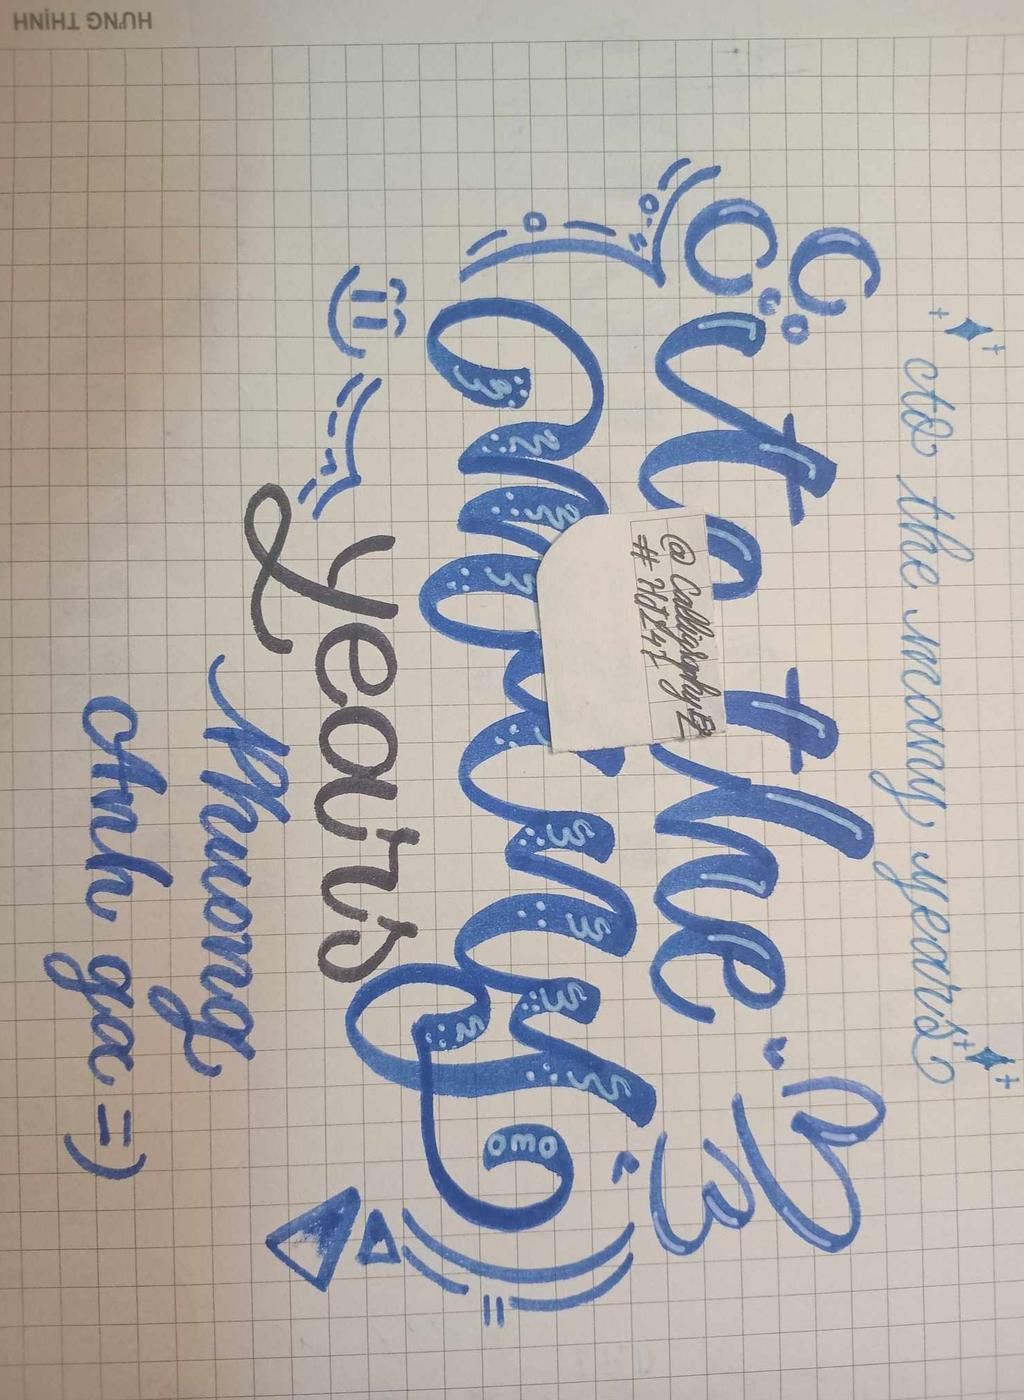 to the many years
to the
@Calligraphy
many
owo
years
Phuong
Anh ga =)
HƯNG THỊNH